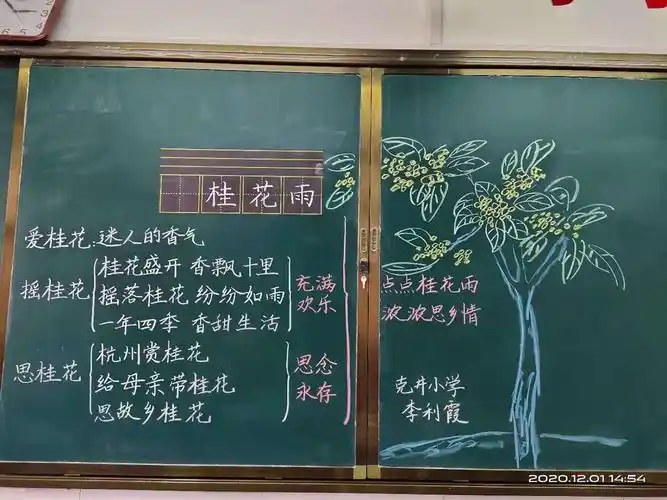 桂花雨
爱桂花:迷人的香气
摇桂花
桂花盛开 香飘十里
摇落桂花 纷纷如雨
一年四季 香甜生活
充满
欢乐
思桂花
杭州赏桂花
给母亲带桂花
思故乡桂花
思念
永存
点点桂花雨
浓浓思乡情
克井小学
李利霞
2020.12.01 14:54